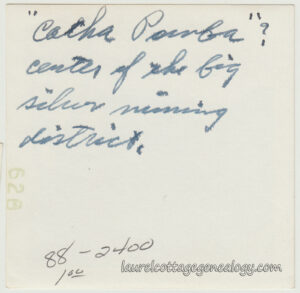 "Cocha Pamba"?
center of the big
silver mining
district.
628
88-2400
1.00
laurelcottagegenealogy.com